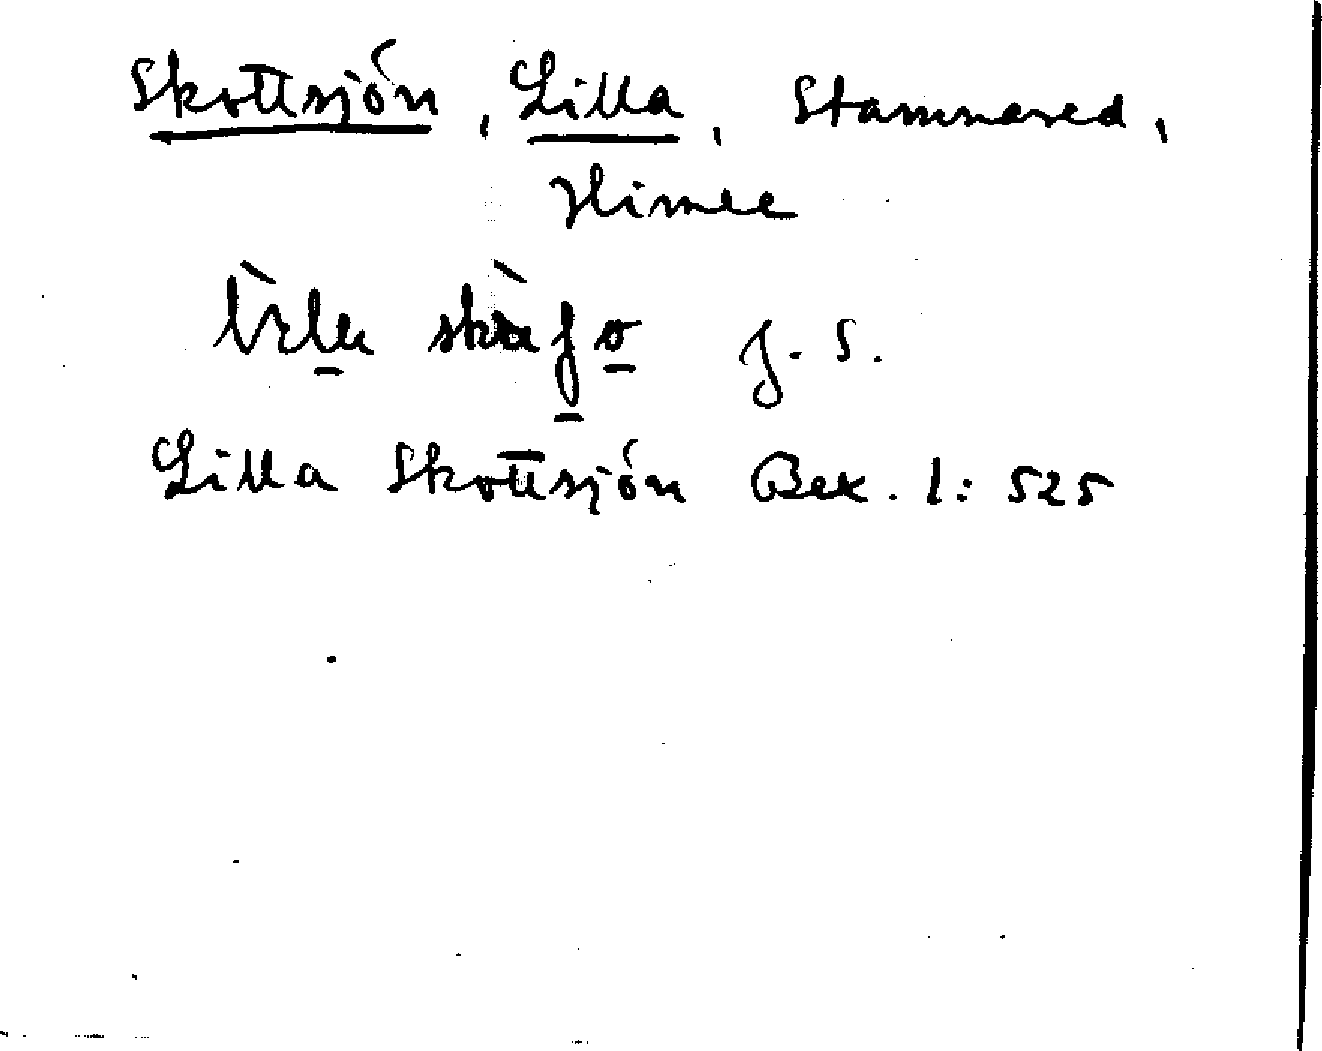 Skottsjön, Lilla, Stamnared,
Himle
J. S.
Lilla Skottsjön Bex. 1: 525